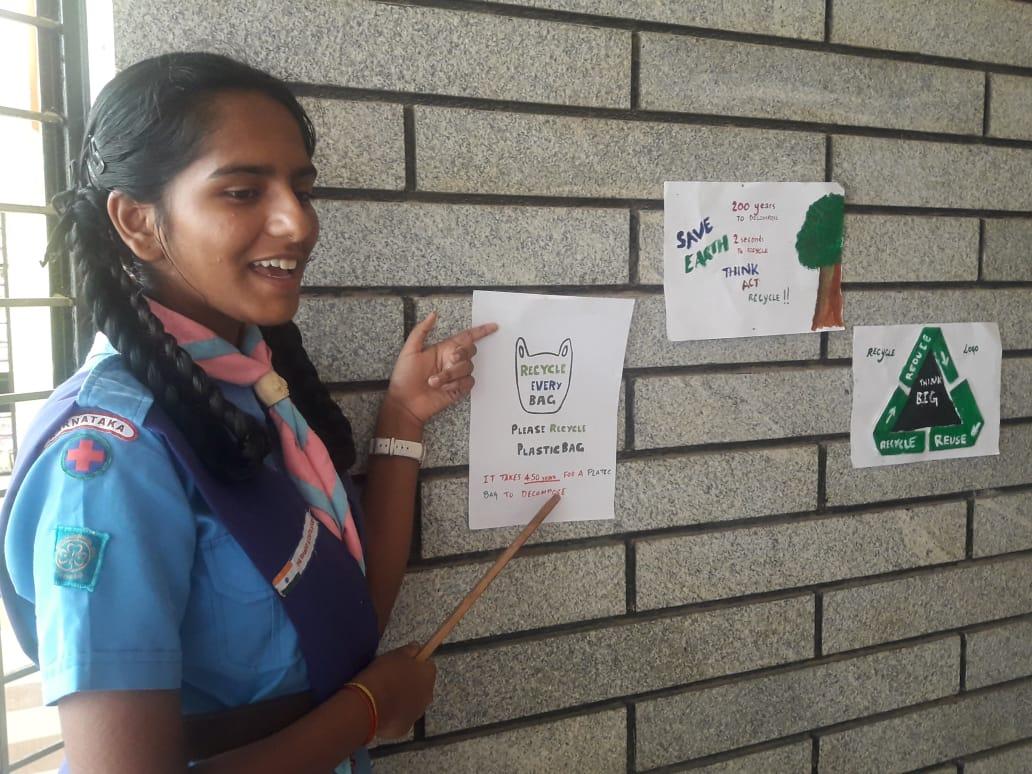 RNATAKA
RECYCLE
EVERY
BAG
PLEASE RECYCLE
PLASTIC BAG
IT TAKES 450 YEARS FOR A PLATEC
BAG TO DECOMPOSE
SAVE
EARTH
200 years
TO DECOMPOSE
2 seconds
TO RECYCLE
THINK
ACT
RECYCLE!!
RECYCLE
LOGO
REDUCE
THINK
BIG
RECYCLE
REUSE